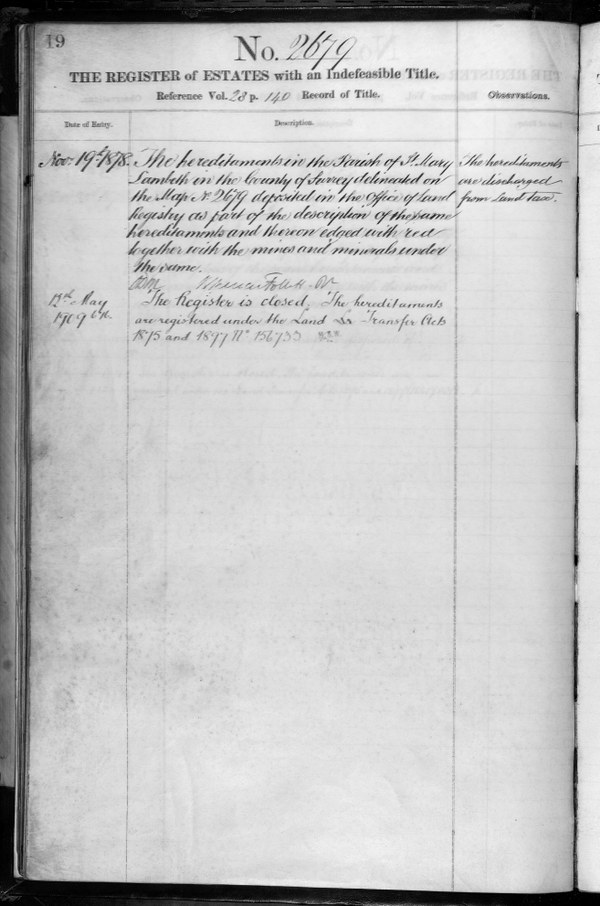 19
No. 2679
THE REGISTER of ESTATES with an Indefeasible Title.
Reference Vol. 28 p. 140 Record of Title.
Observations.
Date of Entry.
Description.
Novr 19th 1878.
The hereditaments in the Parish of St Mary
Lambeth in the County of Surrey delineated on
the Map No. 2679 deposited in the Office of Land
Registry as part of the description of the same
hereditaments and thereon edged with red
together with the mines and minerals under
the same.
The hereditaments
are discharged
from Land Tax.
13th May
1909
The Register is closed, The hereditaments
are registered under the Land Transfer Acts
1875 and 1897 No 156733